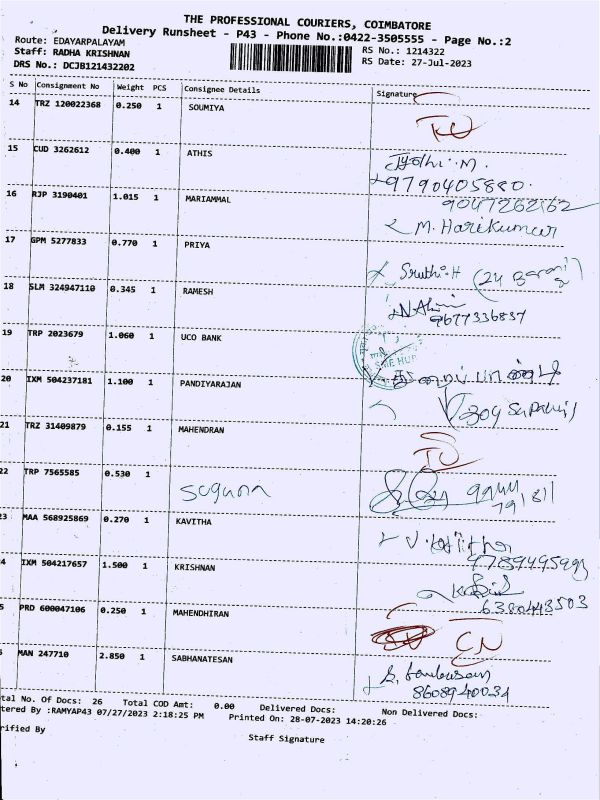 THE PROFESSIONAL COURIERS, COIMBATORE
Delivery Runsheet - P43 - Phone No.:0422-3505555 - Page No.:2
Route: EDAYARPALAYAM
RS No.: 1214322
Staff: RADHA KRISHNAN
RS Date: 27-Jul-2023
DRS No.: DCJB121432202
S No Consignment No Weight PCS Consignee Details Signature
14 TRZ 120022368 0.250 1 SOUMIYA
15 CUD 3262612 0.400 1 ATHIS
M.
9790405880.
16 RJP 3190401 1.015 1 MARIAMMAL 9047262162
M. Harikumar
17 GPM 5277833 0.770 1 PRIYA
Sruthi.H
18 SLM 324947110 0.345 1 RAMESH
9677336837
19 TRP 2023679 1.060 1 UCO BANK
20 IXM 504237181 1.100 1 PANDIYARAJAN
21 TRZ 31409879 0.155 1 MAHENDRAN
22 TRP 7565585 0.530 1
suguna
23 MAA 568925869 0.270 1 KAVITHA
4 IXM 504217657 1.500 1 KRISHNAN
6380443503
5 PRD 600047106 0.250 1 MAHENDHIRAN
CN
MAN 247710 2.850 1 SABHANATESAN
8608940034
tal No. Of Docs: 26 Total COD Amt: 0.00 Delivered Docs: Non Delivered Docs:
tered By :RAMYAP43 07/27/2023 2:18:25 PM Printed On: 28-07-2023 14:20:26
rified By
Staff Signature